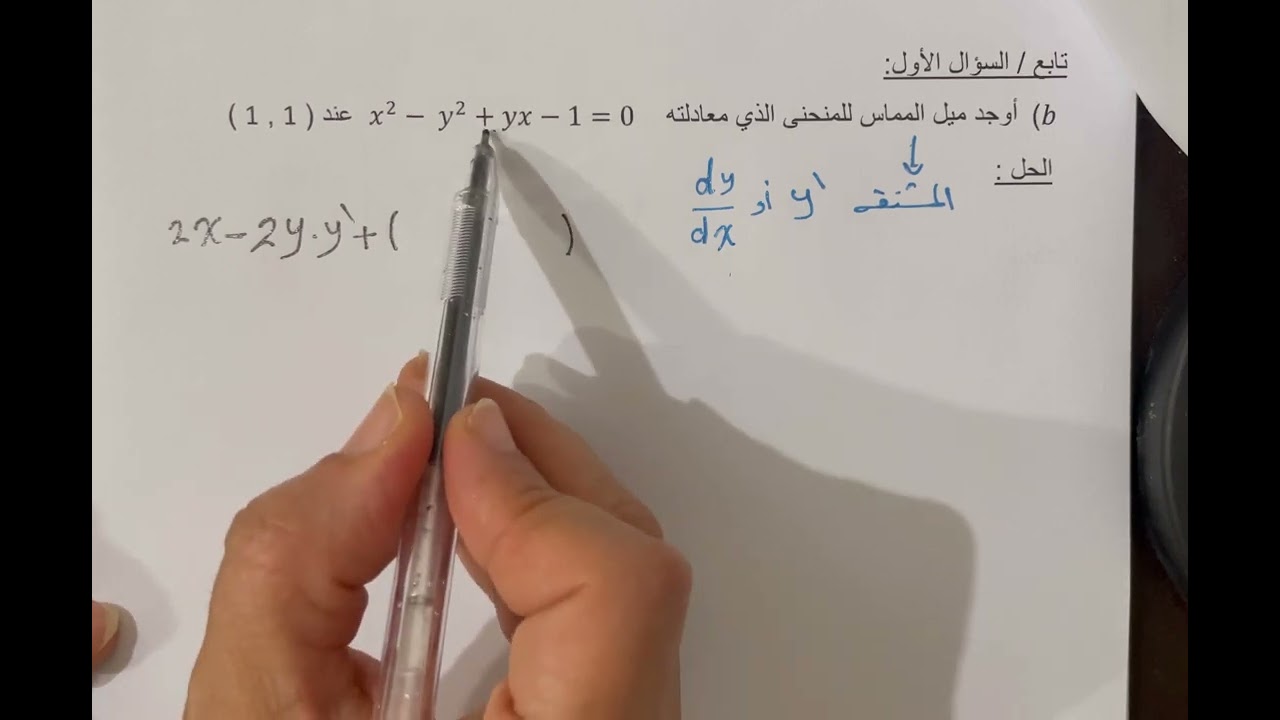 تابع / السؤال الأول:
b) أوجد ميل المماس للمنحنى الذي معادلته x² − y² + yx − 1 = 0 عند ( 1 , 1 )
الحل :
المشتقه y` أو dy/dx
2x − 2y·y` + ( )